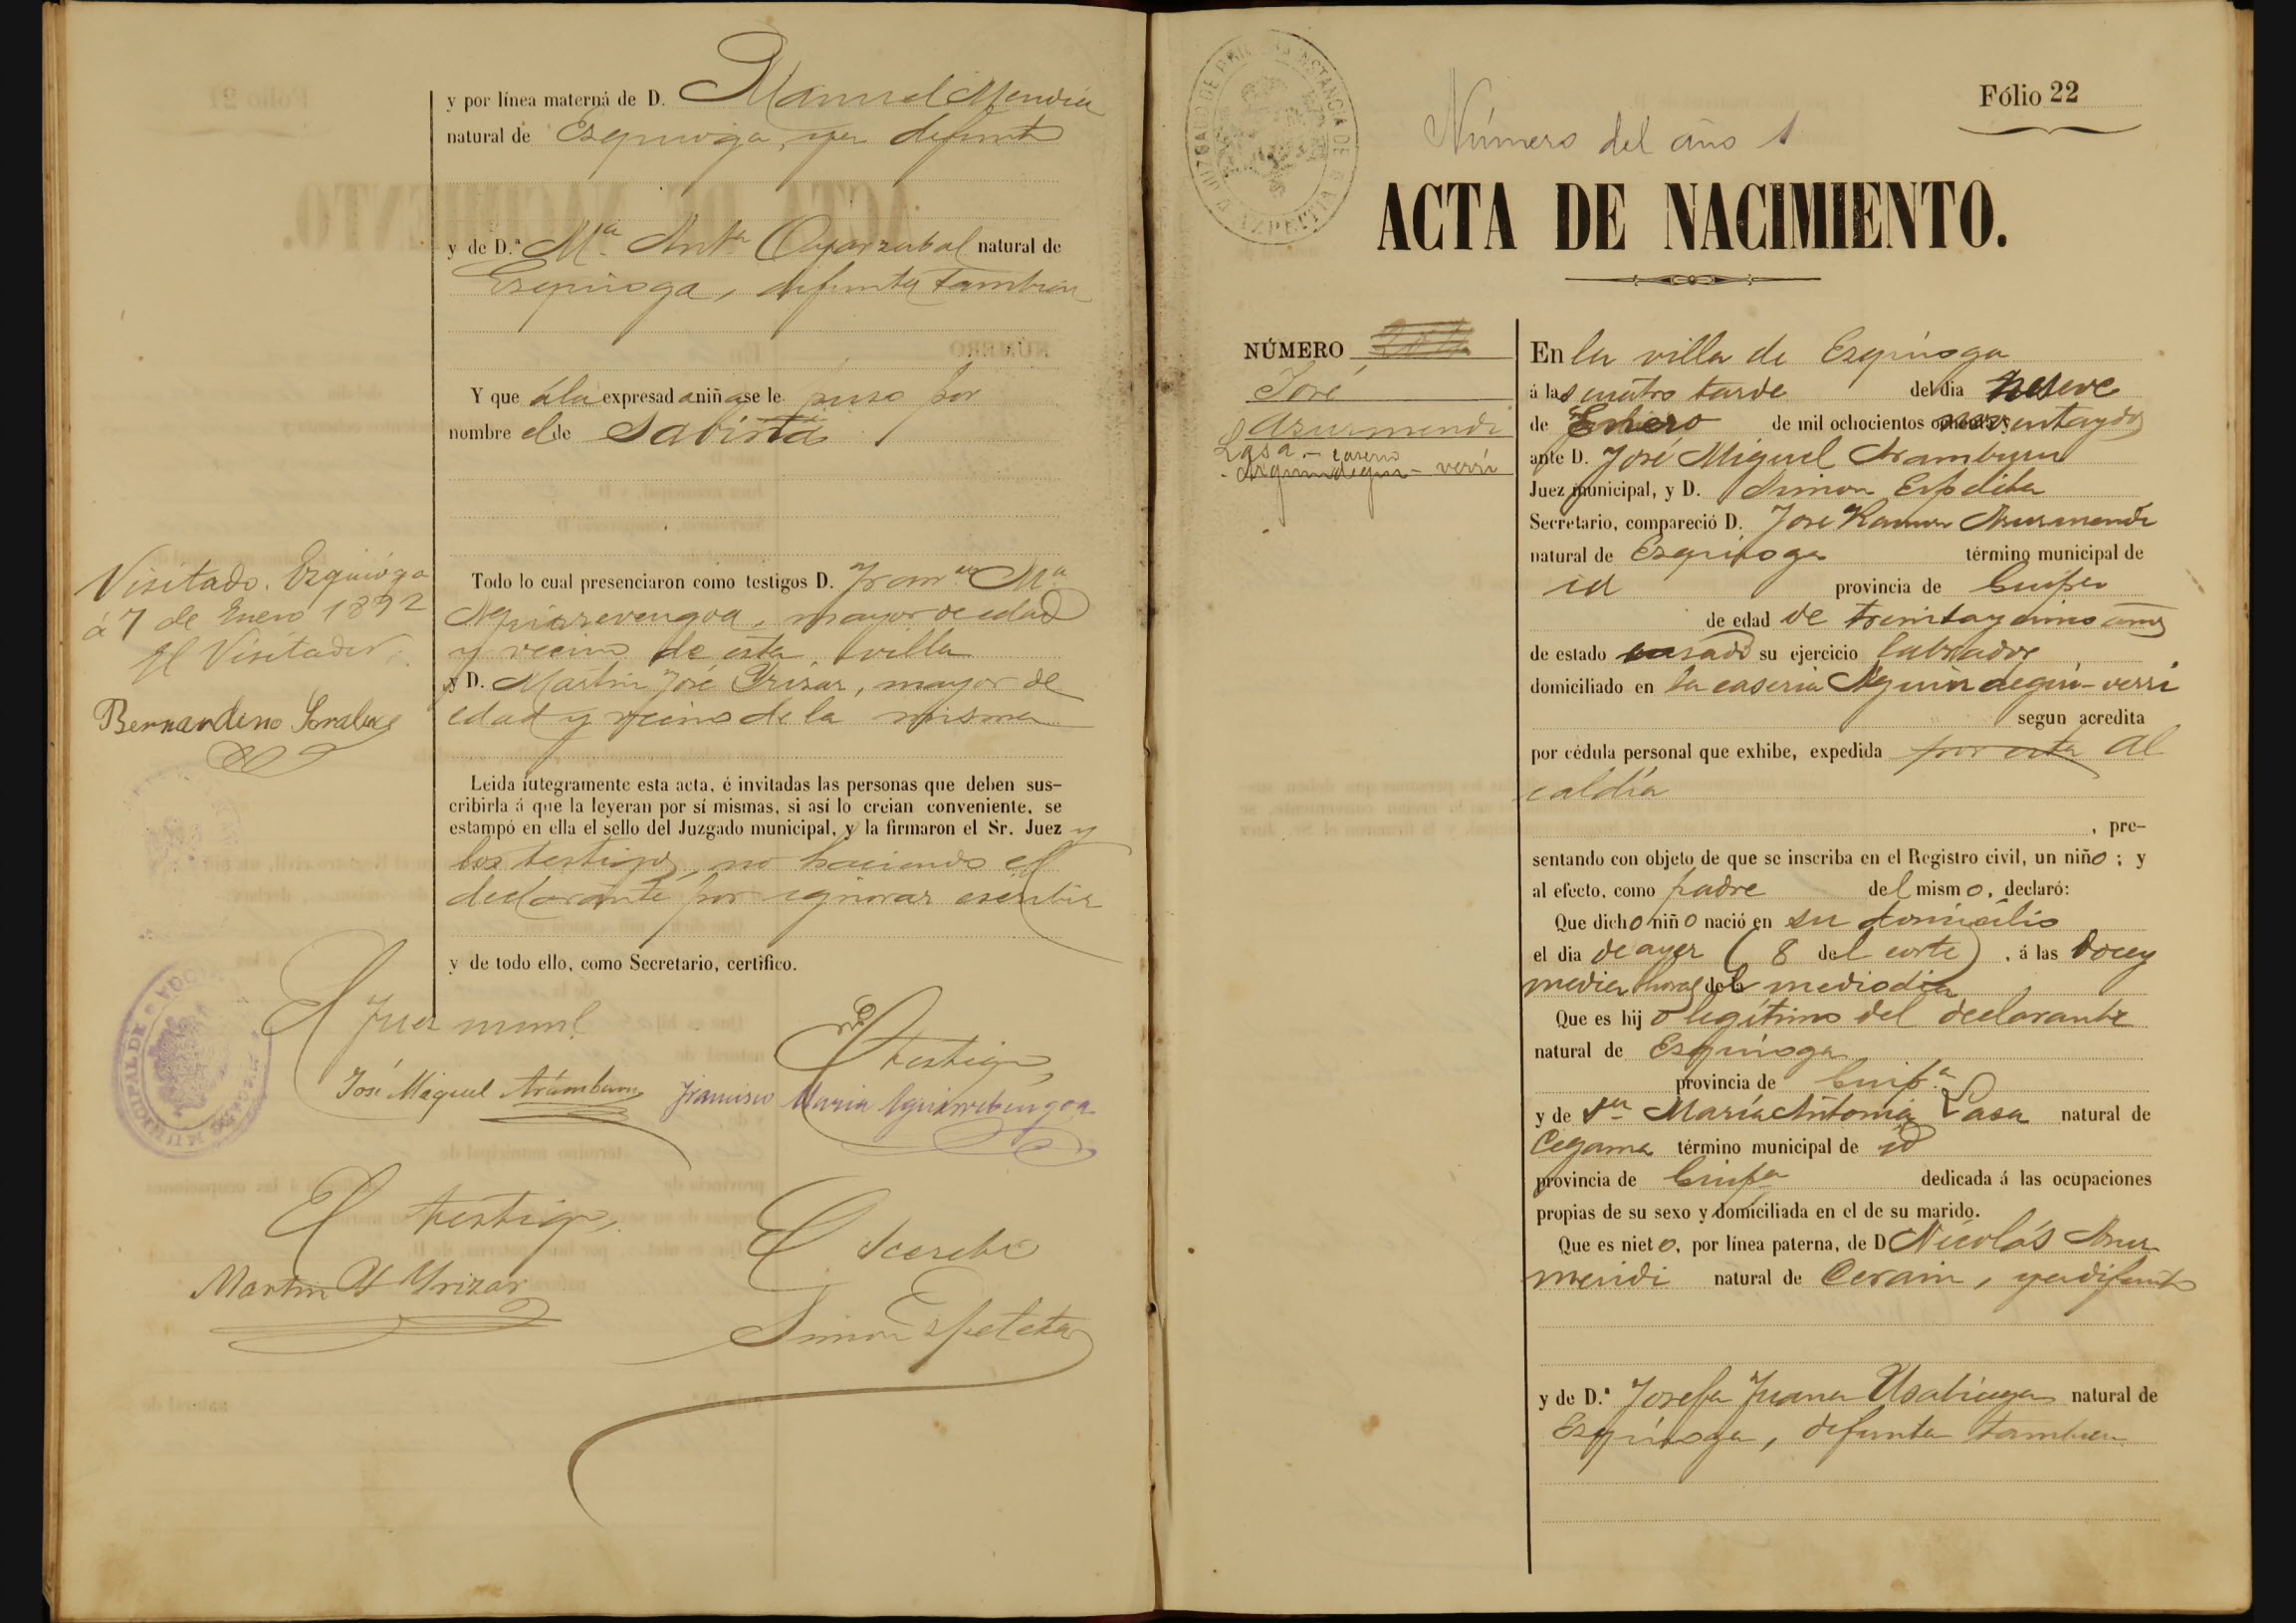 y por línea materna de D. Manuel Mendia
natural de Ezquioga, ya difunto
y de D.ª Mª Antª Oyarzabal natural de
Ezquioga, difunta tambien
Y que á la expresad a niñ a se le puso por
nombre el de Sabina
Todo lo cual presenciaron como testigos D. Franco Mª
Aguirrevengoa, mayor de edad
y vecino de esta villa
y D. Martin José Yrizar, mayor de
edad y vecino de la misma
Leida íntegramente esta acta, é invitadas las personas que deben sus-
cribirla á que la leyeran por sí mismas, si así lo creian conveniente, se
estampó en ella el sello del Juzgado municipal, y la firmaron el Sr. Juez y
los testigos, no haciendo el
declarante por ignorar escribir
y de todo ello, como Secretario, certifico.
Visitado. Ezquioga
á 7 de Enero 1892
El Visitador
Bernardino
El Juez munl.
José Miguel Arámburu
El testigo,
Francisco Maria Aguirrebengoa
El testigo,
Martin J Yrizar
El Secreto
Simon Espeleta
JUZGADO MUNICIPAL DE
Número del año 1
Fólio 22
JUZGADO DE PRIMERA INSTANCIA DE AZPEITIA
ACTA DE NACIMIENTO.
NÚMERO
José
Asurmendi
Lasa - caserio
- Arguindegui - verri
En la villa de Ezquioga
á las cuatro tarde del dia nueve
de Enero de mil ochocientos noventa y dos
ante D. José Miguel Aramburu
Juez municipal, y D. Simon Espeleta
Secretario, compareció D. José Ramon Asurmendi
natural de Ezquioga término municipal de
id provincia de Guipa
de edad de treinta y cinco años
de estado casado su ejercicio labrador
domiciliado en la caseria Aguindegui-verri
segun acredita
por cédula personal que exhibe, expedida por esta Al
caldía
, pre-
sentando con objeto de que se inscriba en el Registro civil, un niño; y
al efecto, como padre del mismo, declaró:
Que dicho niño nació en su domicilio
el dia de ayer (8 del corte), á las doce y
media horas del mediodia
Que es hijo legítimo del declarante
natural de Ezquioga
provincia de Guipª
y de Dª María Antonia Lasa natural de
Cegama término municipal de id
provincia de Guipa dedicada á las ocupaciones
propias de su sexo y domiciliada en el de su marido.
Que es nieto, por línea paterna, de D Nicolás Asur
mendi natural de Cerain, ya difunto
y de D.ª Josefa Juana Usabiaga natural de
Ezquioga, difunta tambien